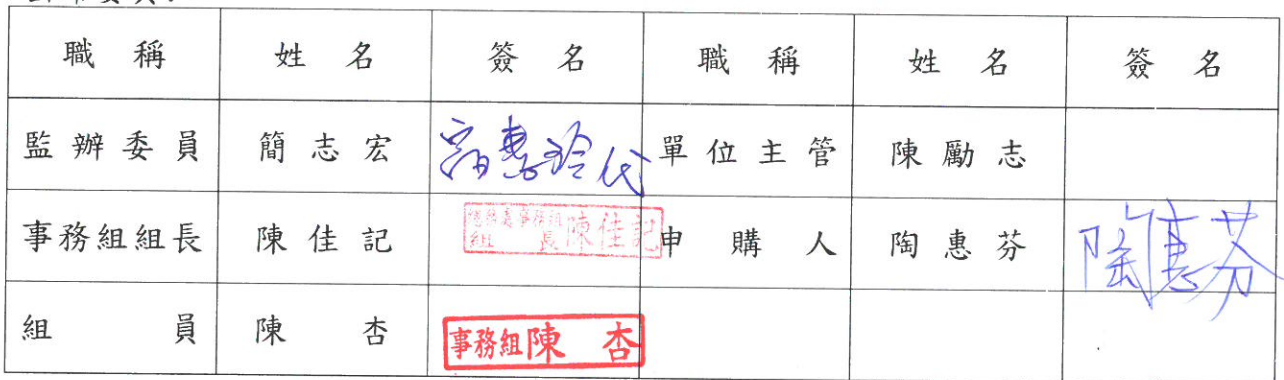 職稱 姓名 簽名 職稱 姓名 簽名
監辦委員 簡志宏 惠玲代 單位主管 陳勵志
事務組組長 陳佳記 總務處事務組組長陳佳記 申購人 陶惠芬 陶惠芬
組員 陳杏 事務組陳杏